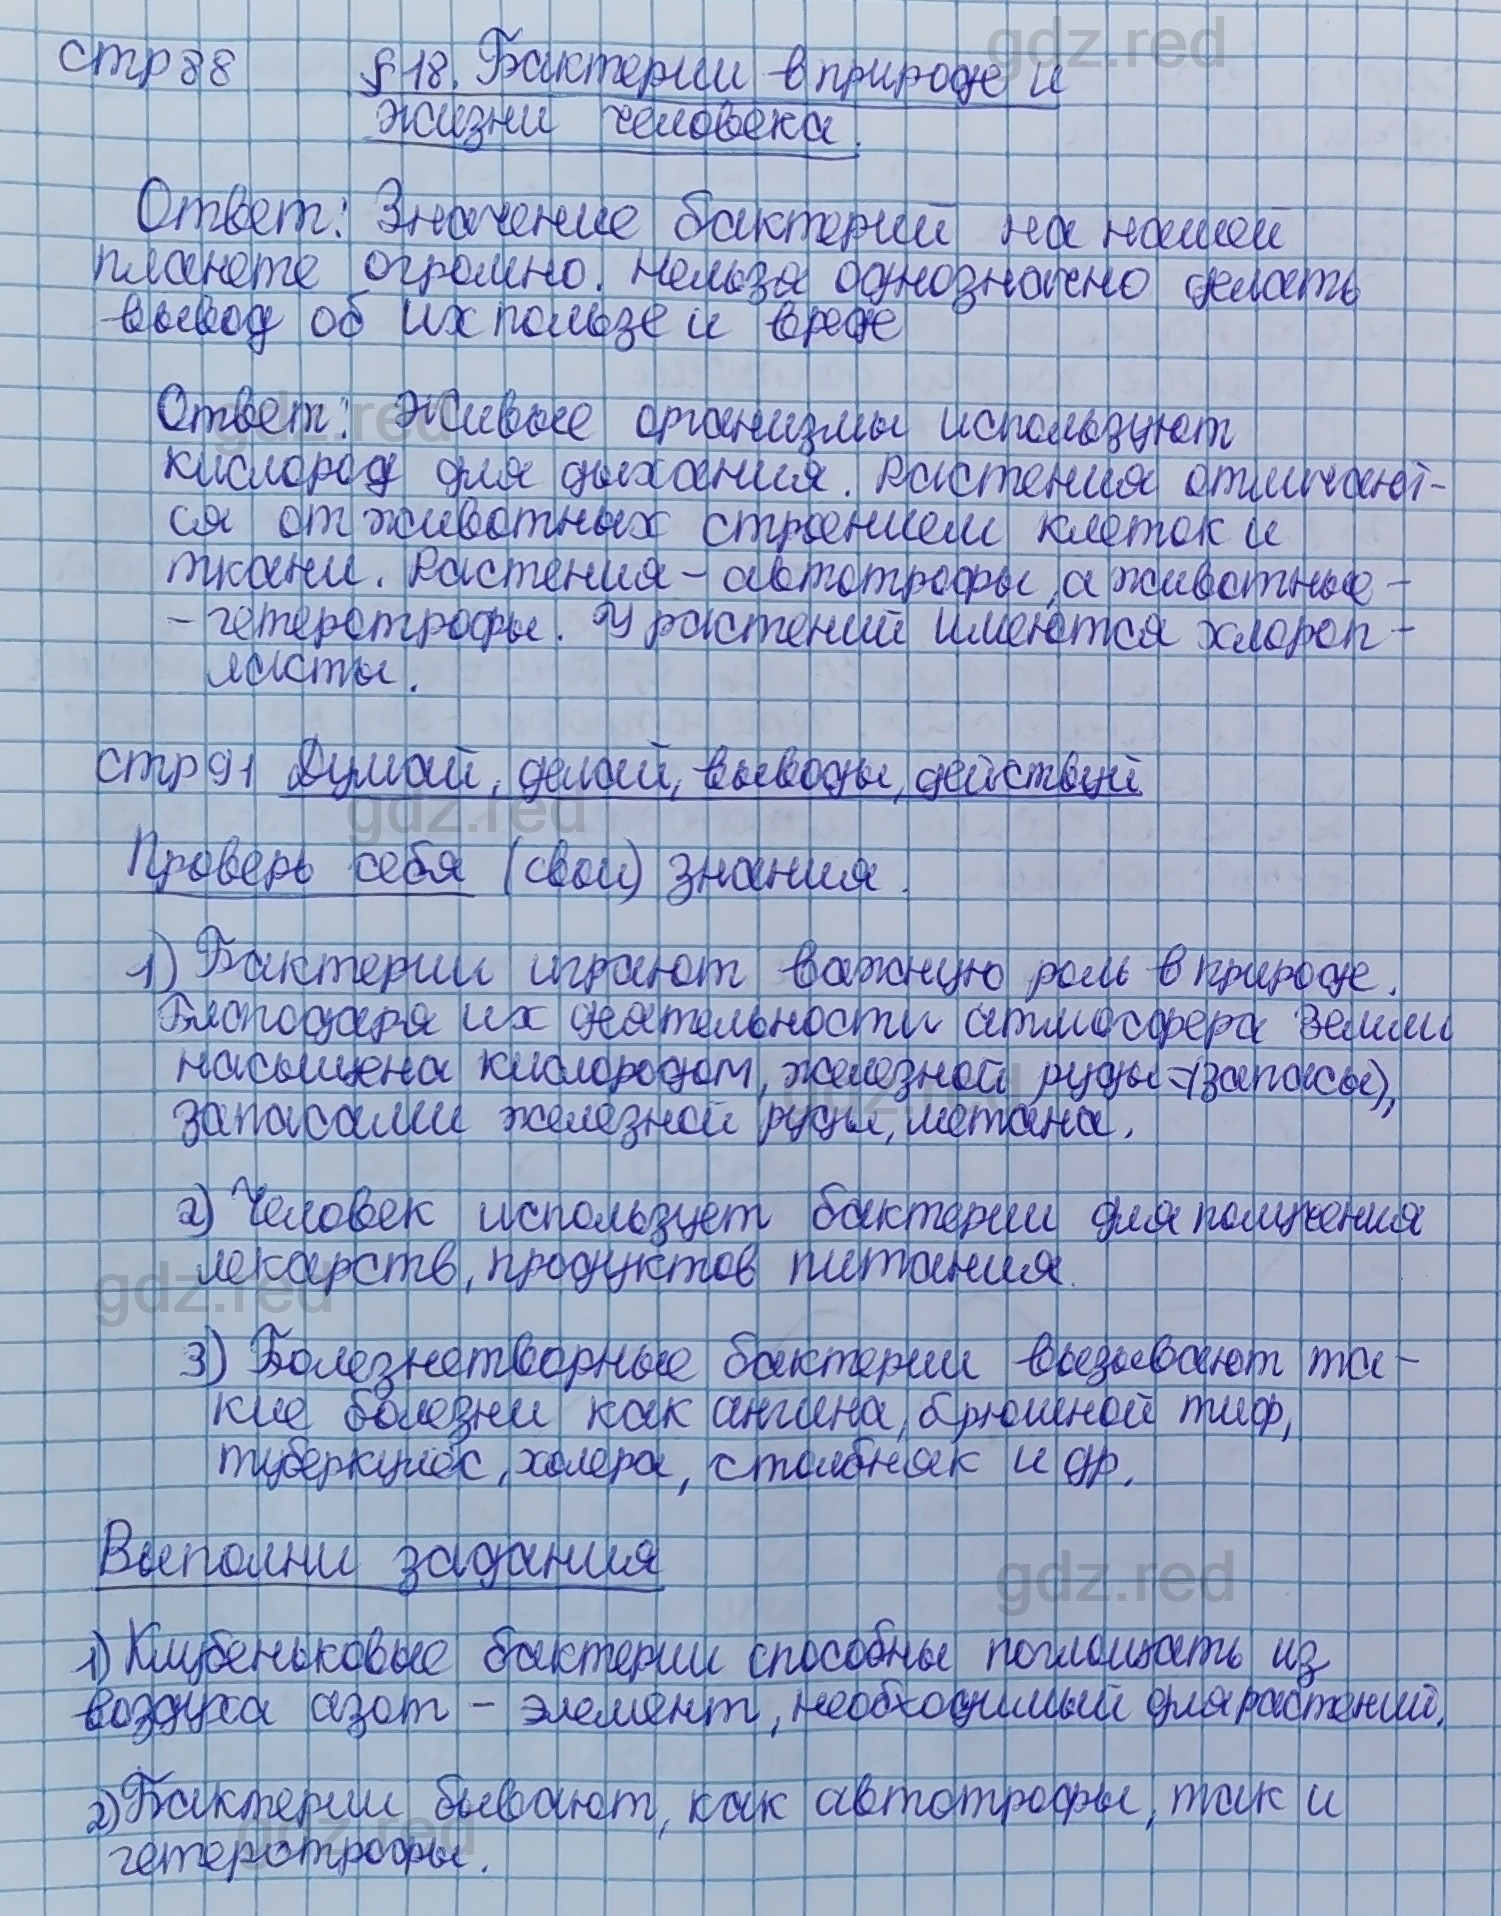 стр 88 § 18. Бактерии в природе и
жизни человека.
Ответ: Значение бактерий на нашей
планете огромно. Нельзя однозначно делать
вывод об их пользе и вреде
Ответ: Живые организмы используют
кислород для дыхания. Растения отличают-
ся от животных строением клеток и
ткани. Растения - автотрофы, а животные -
- гетеротрофы. У растений имеются хлороп-
ласты.
стр 91 Думай, делай, выводы, действуй
Проверь себя (свои) знания.
1) Бактерии играют важную роль в природе.
Благодаря их деятельности атмосфера Земли
насыщена кислородом, железной руды (запасы),
запасами железной руды, метана.
2) Человек использует бактерии для получения
лекарств, продуктов питания.
3) Болезнетворные бактерии вызывают та-
кие болезни как ангина, брюшной тиф,
туберкулёс, холера, столбняк и др.
Выполни задания
1) Клубеньковые бактерии способны поглощать из
воздуха азот - элемент, необходимый для растений.
2) Бактерии бывают, как автотрофы, так и
гетеротрофы.
gdz.red
gdz.red
gdz.red
gdz.red
gdz.red
gdz.red
gdz.red